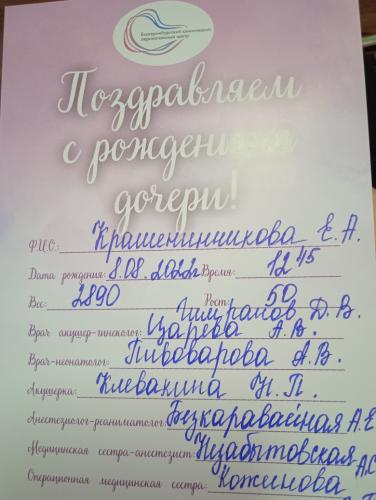 Екатеринбургский клинический
перинатальный центр
Поздравляем
с рождением
дочери!
Ф.И.О.: Крашенинникова Е.А.
Дата рождения: 8.08.2022г Время: 12 45
Вес: 2890 Рост: 50
Д.В.
Врач акушер-гинеколог: Царёва А.В.
Врач-неонатолог: Пивоварова А.В.
Акушерка: Клевакина Н.П.
Анестезиолог-реаниматолог: Безкаравайная А.Е
Медицинская сестра-анестезист: А.С
Операционная медицинская сестра: Кожинова